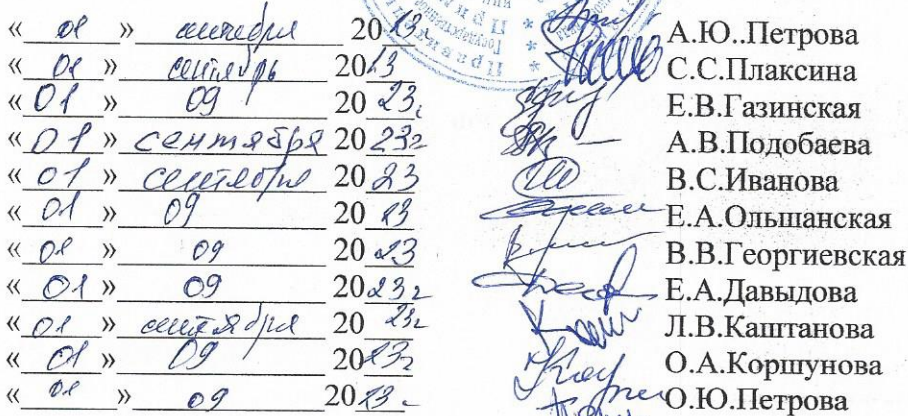 « 01 » сентября 2023 А.Ю..Петрова
« 01 » сентябрь 2023 С.С.Плаксина
« 01 » 09 2023г А.В.Газинская
« 01 » сентября 2023г А.В.Подобаева
« 01 » сентября 2023 В.С.Иванова
« 01 » 09 2023 Е.А.Ольшанская
« 01 » 09 2023 В.В.Георгиевская
« 01 » 09 2023г Е.А.Давыдова
« 01 » сентября 2023г Л.В.Каштанова
« 01 » 09 2023г О.А.Коршунова
« 01 » 09 2023 О.Ю.Петрова